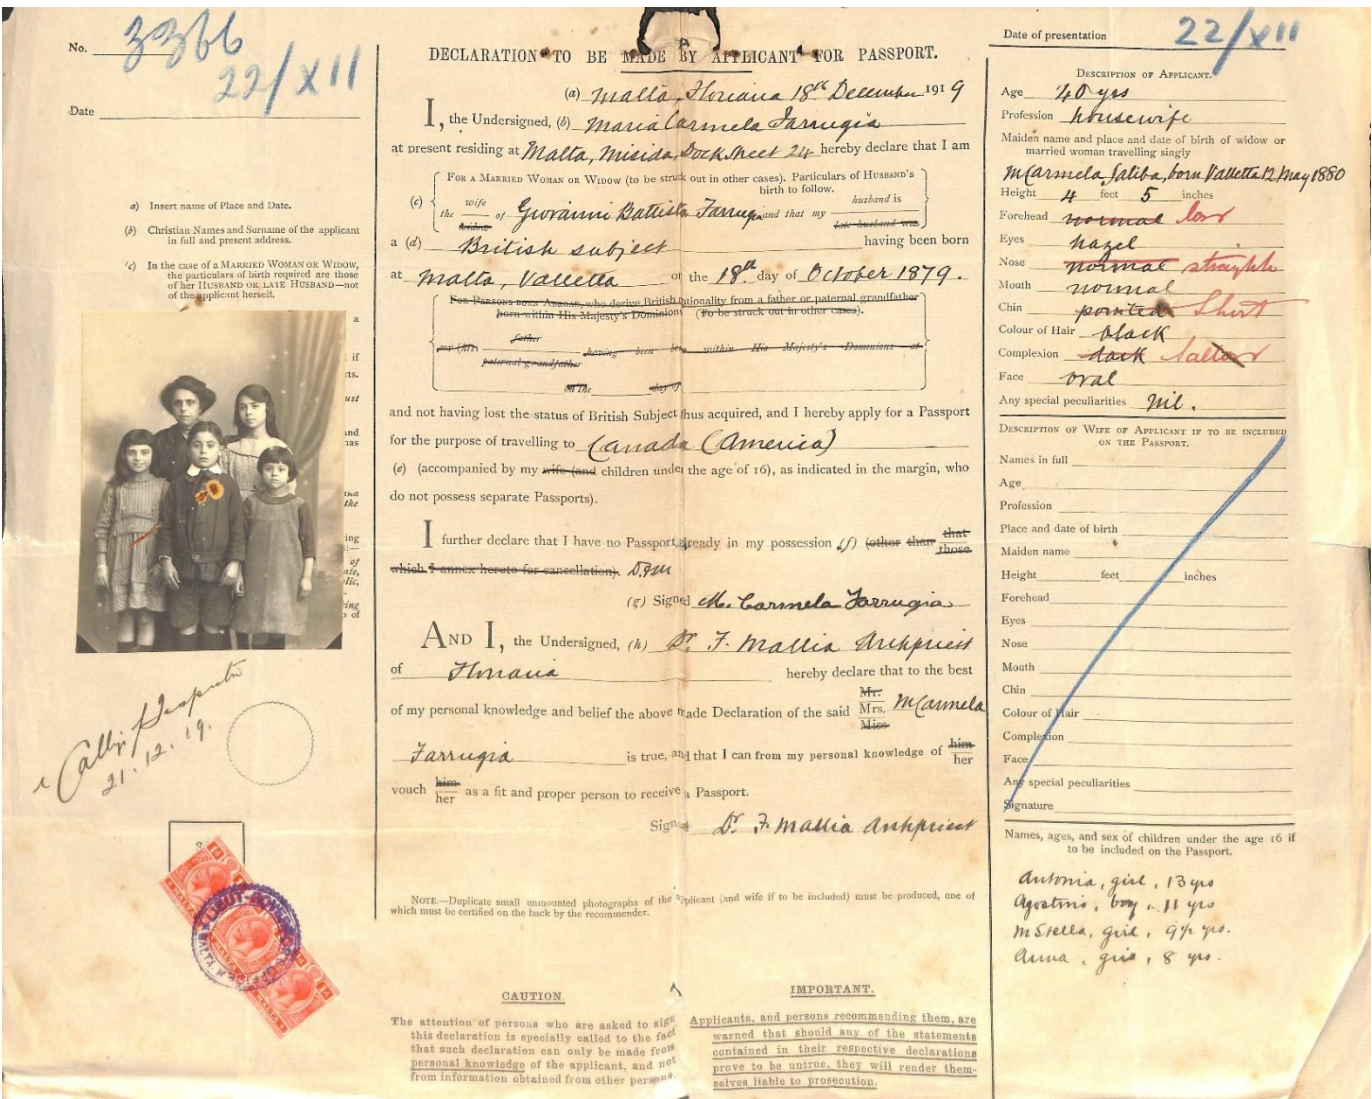 No. 3366
22/XII
Date
a) Insert name of Place and Date.
(b) Christian Names and Surname of the applicant
in full and present address.
(c) In the case of a MARRIED WOMAN OR WIDOW,
the particulars of birth required are those
of her HUSBAND OR LATE HUSBAND—not
of the applicant herself.
21.12.19.
DECLARATION TO BE MADE BY APPLICANT FOR PASSPORT.
(a) Malta, Floriana 18th December 1919
I, the Undersigned, (b) Maria Carmela Farrugia
at present residing at Malta, Misida, Dock Street 24 hereby declare that I am
FOR A MARRIED WOMAN OR WIDOW (to be struck out in other cases). Particulars of HUSBAND'S
birth to follow.
(c) the wife widow of Giovanni Battista Farrugia and that my husband is late husband was
a (d) British subject having been born
at Malta, Valletta on the 18th day of October 1879.
FOR PERSONS BORN ABROAD, who derive British nationality from a father or paternal grandfather
born within His Majesty's Dominions (To be struck out in other cases).
my (his) father paternal grandfather having been born within His Majesty's Dominions at
on the day of
and not having lost the status of British Subject thus acquired, and I hereby apply for a Passport
for the purpose of travelling to Canada (America)
(e) (accompanied by my wife (and children under the age of 16), as indicated in the margin, who
do not possess separate Passports).
I further declare that I have no Passport already in my possession (f) (other than that those
which I annex hereto for cancellation).
(g) Signed M. Carmela Farrugia
AND I, the Undersigned, (h) Dr. F. Mallia Archpriest
of Floriana hereby declare that to the best
of my personal knowledge and belief the above made Declaration of the said Mr. Mrs. Miss M Carmela
Farrugia is true, and that I can from my personal knowledge of him her
vouch him her as a fit and proper person to receive a Passport.
Signed Dr. F. Mallia Archpriest
NOTE.—Duplicate small unmounted photographs of the applicant (and wife if to be included) must be produced, one of
which must be certified on the back by the recommender.
CAUTION.
The attention of persons who are asked to sign
this declaration is specially called to the fact
that such declaration can only be made from
personal knowledge of the applicant, and not
from information obtained from other persons.
IMPORTANT.
Applicants, and persons recommending them, are
warned that should any of the statements
contained in their respective declarations
prove to be untrue, they will render them-
selves liable to prosecution.
Date of presentation 22/XII
DESCRIPTION OF APPLICANT.
Age 40 yrs
Profession housewife
Maiden name and place and date of birth of widow or
married woman travelling singly
M Carmela Saliba, born Valletta 12 May 1880
Height 4 feet 5 inches
Forehead normal low
Eyes hazel
Nose normal straight
Mouth normal
Chin pointed Short
Colour of Hair black
Complexion dark Sallow
Face oval
Any special peculiarities nil.
DESCRIPTION OF WIFE OF APPLICANT IF TO BE INCLUDED
ON THE PASSPORT.
Names in full
Age
Profession
Place and date of birth
Maiden name
Height feet inches
Forehead
Eyes
Nose
Mouth
Chin
Colour of Hair
Complexion
Face
Any special peculiarities
Signature
Names, ages, and sex of children under the age 16 if
to be included on the Passport.
Antonia, girl, 13 yrs
Agostino, boy, 11 yrs
M Stella, girl, 9½ yrs.
Anna, girl, 8 yrs.